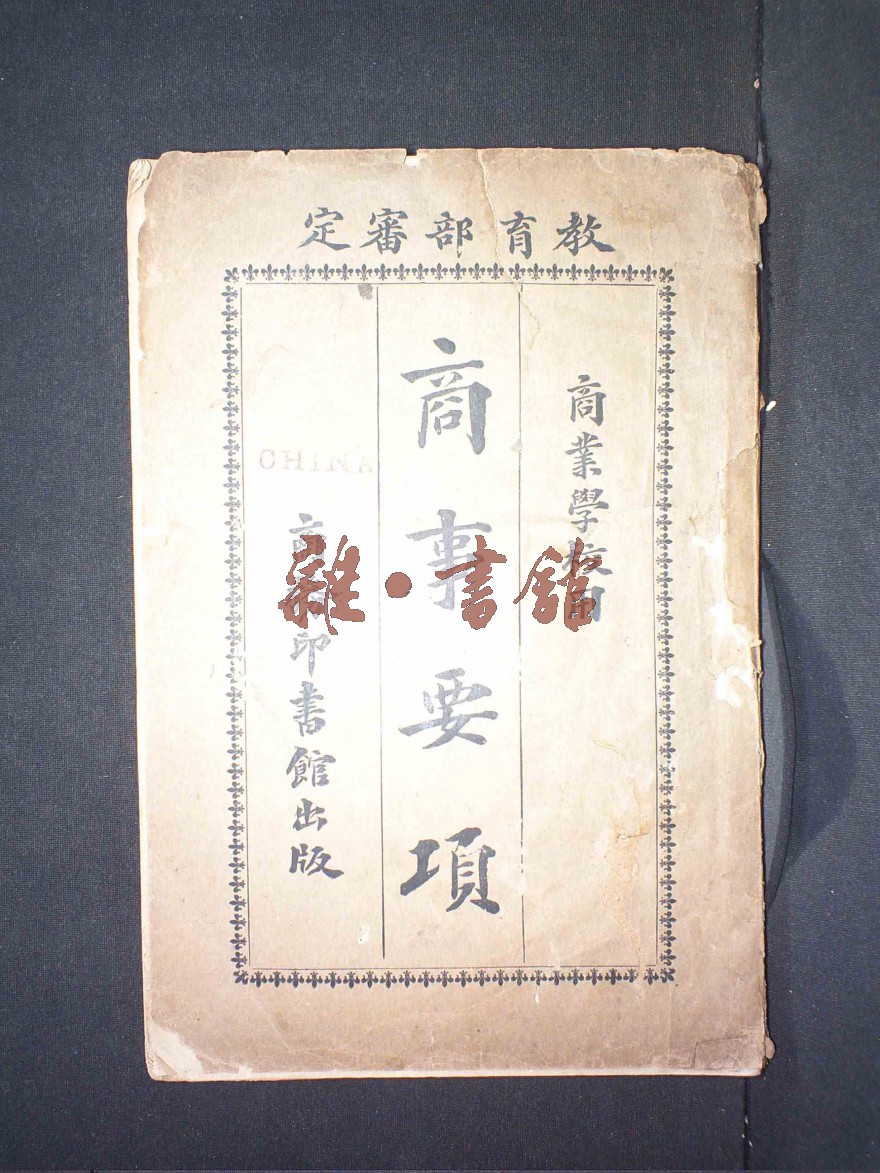 教育部審定
商業學校用
商事要項
商務印書館出版
CHINA
雜·書館